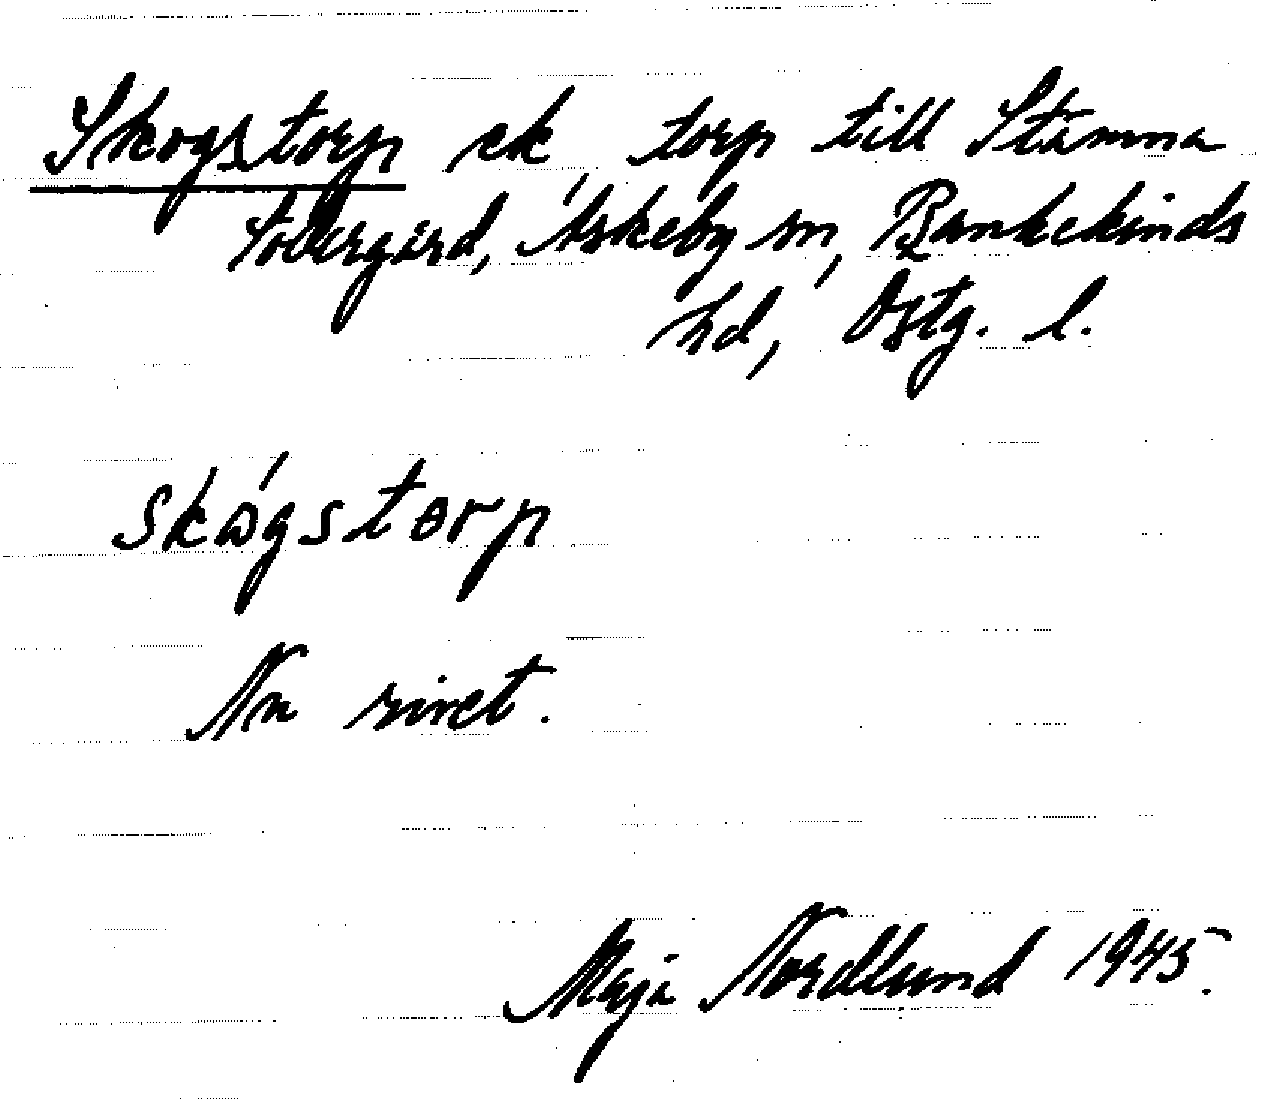 Skogstorp ek torp till Stämma
Södergård, Askeby sn, Bankekinds
hd, Östg. l.
skógstorp
Nu rivet.
Maja Nordlund 1945.